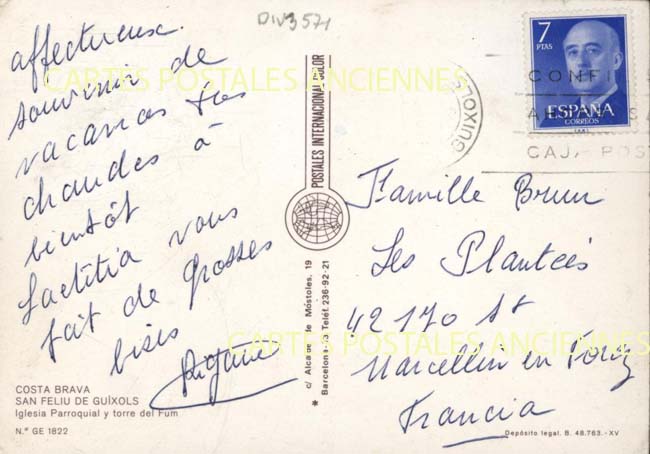 DIV3571
affectueux
souvenir de
vacances très
chaudes à
bientôt
Laetitia vous
fait de grosses
bises
COSTA BRAVA
SAN FELIU DE GUÍXOLS
Iglesia Parroquial y torre del Fum
N.º GE 1822
POSTALES INTERNACIONAL COLOR
c/ Alcalde de Móstoles, 19
Barcelona-13 Telf. 236-92-21
7
PTAS
ESPAÑA
CORREOS
GUIXOLS
CONFI
CAJ POS
Famille Brun
Les Plantées
42170 St
Marcellin en Forez
Francia
Depósito legal. B. 48.763.-XV
CARTES POSTALES ANCIENNES
CARTES POSTALES ANCIENNES